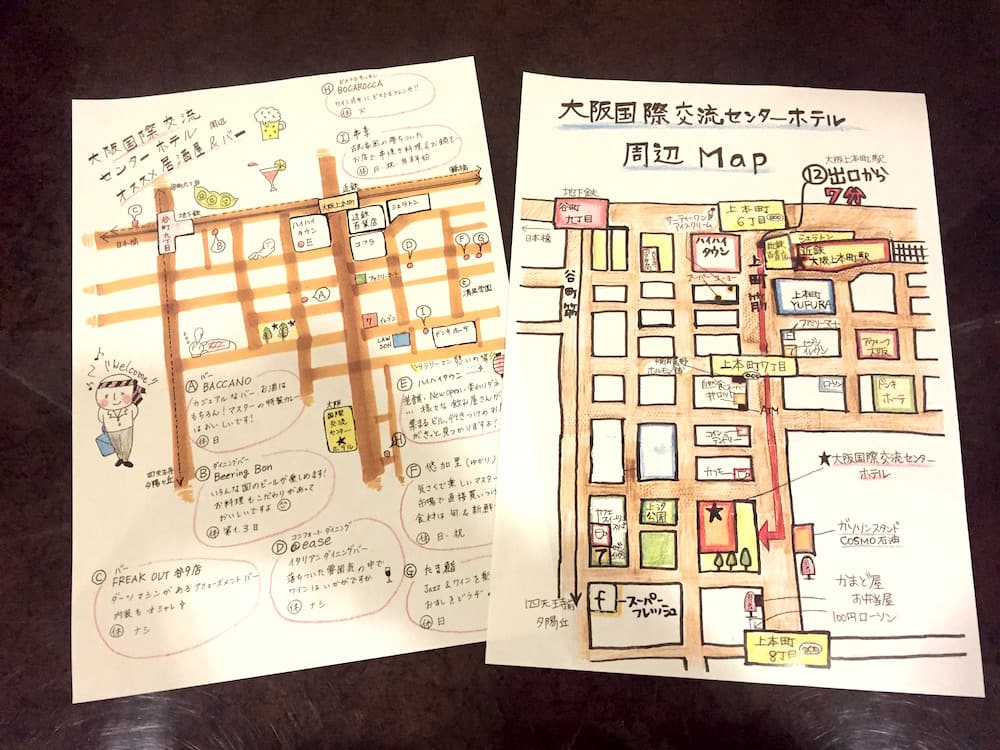 大阪国際交流
センターホテル 周辺
オススメ 居酒屋 & バー
Ⓗ ビストロキッチン
BOCAROCCA
休 火
Ⓘ 串幸
休 日・祝
谷町六丁目
地下鉄
近鉄
鶴橋
大阪上本町
谷町九丁目
日本橋
ハイハイ
タウン
E
近鉄
百貨店
シェラトン
ユフラ
ファミリーマート
清風学園
7 イレブン
LAWSON
ドンキホーテ
四天王寺
夕陽ヶ丘
大阪
国際
交流
センター
★
ホテル
♪ "Welcome"
Ⓐ バー
BACCANO
カジュアルなバー お酒は
もちろん!マスターの特製カレー
はおいしいです!
休 日
Ⓑ ダイニングバー
Beering Bon
いろんな国のビールが楽しめます!
お料理もこだわりがあって
おいしいですよ
休 第1.3 日
Ⓒ バー
FREAK OUT 谷9店
ダーツマシンがあるアミューズメントバー
内装もオシャレ
休 ナシ
Ⓓ コンフォートダイニング
@ease
イタリアンダイニングバー
落ちついた雰囲気の中で
ワインはいかがですか
休 ナシ
サラリーマン 憩いの場
Ⓔ ハイハイタウン
老舗・New open・変わりダネ
様々な飲み屋さんが
集まるビル。行きつけのお
がきっと見つかりますよ!
Ⓕ 悠加里(ゆかり)
気さくで楽しいマスター
市場で直接買いつけ
食材は旬&新鮮
休 日・祝
Ⓖ たま鮨
Jazz & ワインを
おすしをどうぞ
休 日
大阪国際交流センターホテル
周辺 Map
大阪上本町駅
⑫出口から
7分
地下鉄
谷町
九丁目
サーティーワン
アイスクリーム
上本町
6丁目
日本橋
ハイハイ
タウン
近鉄
百貨店
シェラトン
近鉄
大阪上本町駅
谷町筋
上町筋
上本町
YUFURA
ファミリーマート
セブン
イレブン
アウィーナ
大阪
上本町7丁目
ローソン
ドンキ
ホーテ
ATM
コイン
ランドリー
カフェー
★大阪国際交流センター
ホテル
上汐
公園
ガソリンスタンド
COSMO石油
かまど屋
お弁当屋
100円ローソン
四天王寺前
夕陽丘
f スーパー
フレッシュ
上本町
8丁目